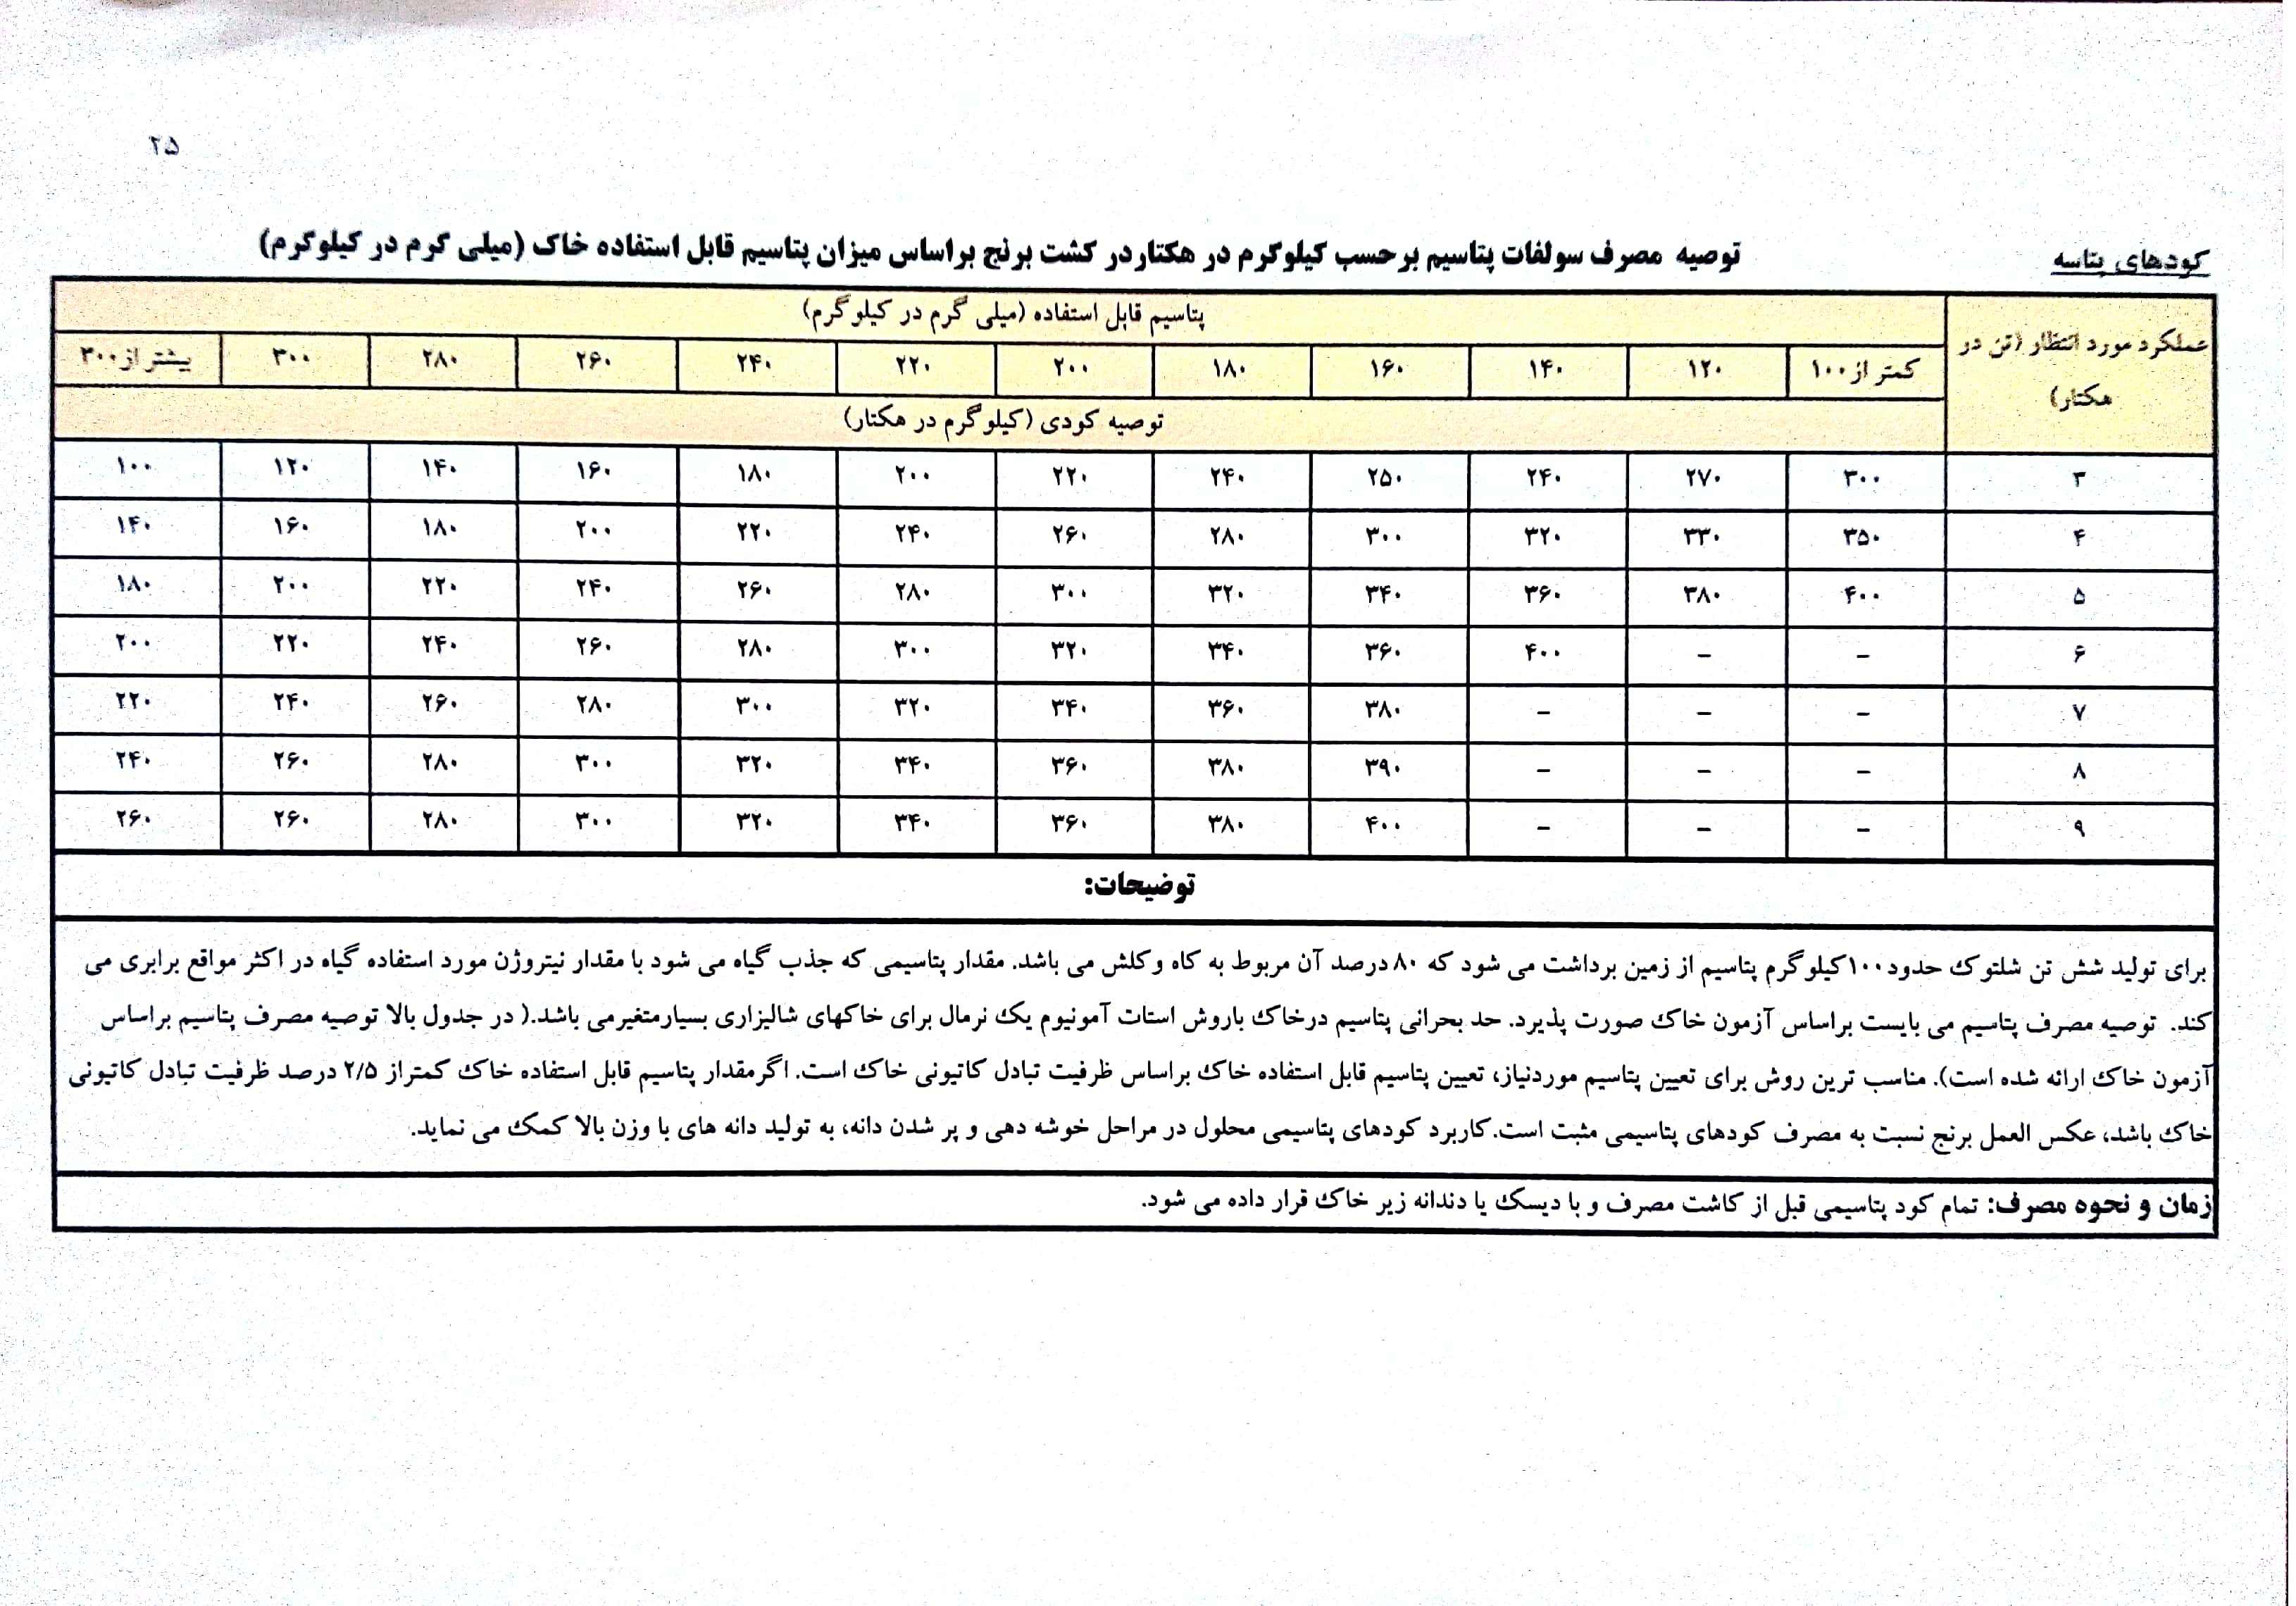 ۲۵
کودهای پتاسه
توصیه مصرف سولفات پتاسیم برحسب کیلوگرم در هکتاردر کشت برنج براساس میزان پتاسیم قابل استفاده خاک (میلی گرم در کیلوگرم)
عملکرد مورد انتظار (تن در هکتار) پتاسیم قابل استفاده (میلی گرم در کیلوگرم)
کمتر از ۱۰۰ ۱۲۰ ۱۴۰ ۱۶۰ ۱۸۰ ۲۰۰ ۲۲۰ ۲۴۰ ۲۶۰ ۲۸۰ ۳۰۰ بیشتر از ۳۰۰
توصیه کودی (کیلوگرم در هکتار)
۳ ۳۰۰ ۲۷۰ ۲۴۰ ۲۵۰ ۲۴۰ ۲۲۰ ۲۰۰ ۱۸۰ ۱۶۰ ۱۴۰ ۱۲۰ ۱۰۰
۴ ۳۵۰ ۳۳۰ ۳۲۰ ۳۰۰ ۲۸۰ ۲۶۰ ۲۴۰ ۲۲۰ ۲۰۰ ۱۸۰ ۱۶۰ ۱۴۰
۵ ۴۰۰ ۳۸۰ ۳۶۰ ۳۴۰ ۳۲۰ ۳۰۰ ۲۸۰ ۲۶۰ ۲۴۰ ۲۲۰ ۲۰۰ ۱۸۰
۶ – – ۴۰۰ ۳۶۰ ۳۴۰ ۳۲۰ ۳۰۰ ۲۸۰ ۲۶۰ ۲۴۰ ۲۲۰ ۲۰۰
۷ – – – ۳۸۰ ۳۶۰ ۳۴۰ ۳۲۰ ۳۰۰ ۲۸۰ ۲۶۰ ۲۴۰ ۲۲۰
۸ – – – ۳۹۰ ۳۸۰ ۳۶۰ ۳۴۰ ۳۲۰ ۳۰۰ ۲۸۰ ۲۶۰ ۲۴۰
۹ – – – ۴۰۰ ۳۸۰ ۳۶۰ ۳۴۰ ۳۲۰ ۳۰۰ ۲۸۰ ۲۶۰ ۲۶۰
توضیحات:
برای تولید شش تن شلتوک حدود ۱۰۰کیلوگرم پتاسیم از زمین برداشت می شود که ۸۰ درصد آن مربوط به کاه وکلش می باشد. مقدار پتاسیمی که جذب گیاه می شود با مقدار نیتروژن مورد استفاده گیاه در اکثر مواقع برابری می
کند. توصیه مصرف پتاسیم می بایست براساس آزمون خاک صورت پذیرد. حد بحرانی پتاسیم درخاک باروش استات آمونیوم یک نرمال برای خاکهای شالیزاری بسیارمتغیرمی باشد.( در جدول بالا توصیه مصرف پتاسیم براساس
آزمون خاک ارائه شده است). مناسب ترین روش برای تعیین پتاسیم موردنیاز، تعیین پتاسیم قابل استفاده خاک براساس ظرفیت تبادل کاتیونی خاک است. اگرمقدار پتاسیم قابل استفاده خاک کمتراز ۲/۵ درصد ظرفیت تبادل کاتیونی
خاک باشد، عکس العمل برنج نسبت به مصرف کودهای پتاسیمی مثبت است.کاربرد کودهای پتاسیمی محلول در مراحل خوشه دهی و پر شدن دانه، به تولید دانه های با وزن بالا کمک می نماید.
زمان و نحوه مصرف: تمام کود پتاسیمی قبل از کاشت مصرف و با دیسک یا دندانه زیر خاک قرار داده می شود.